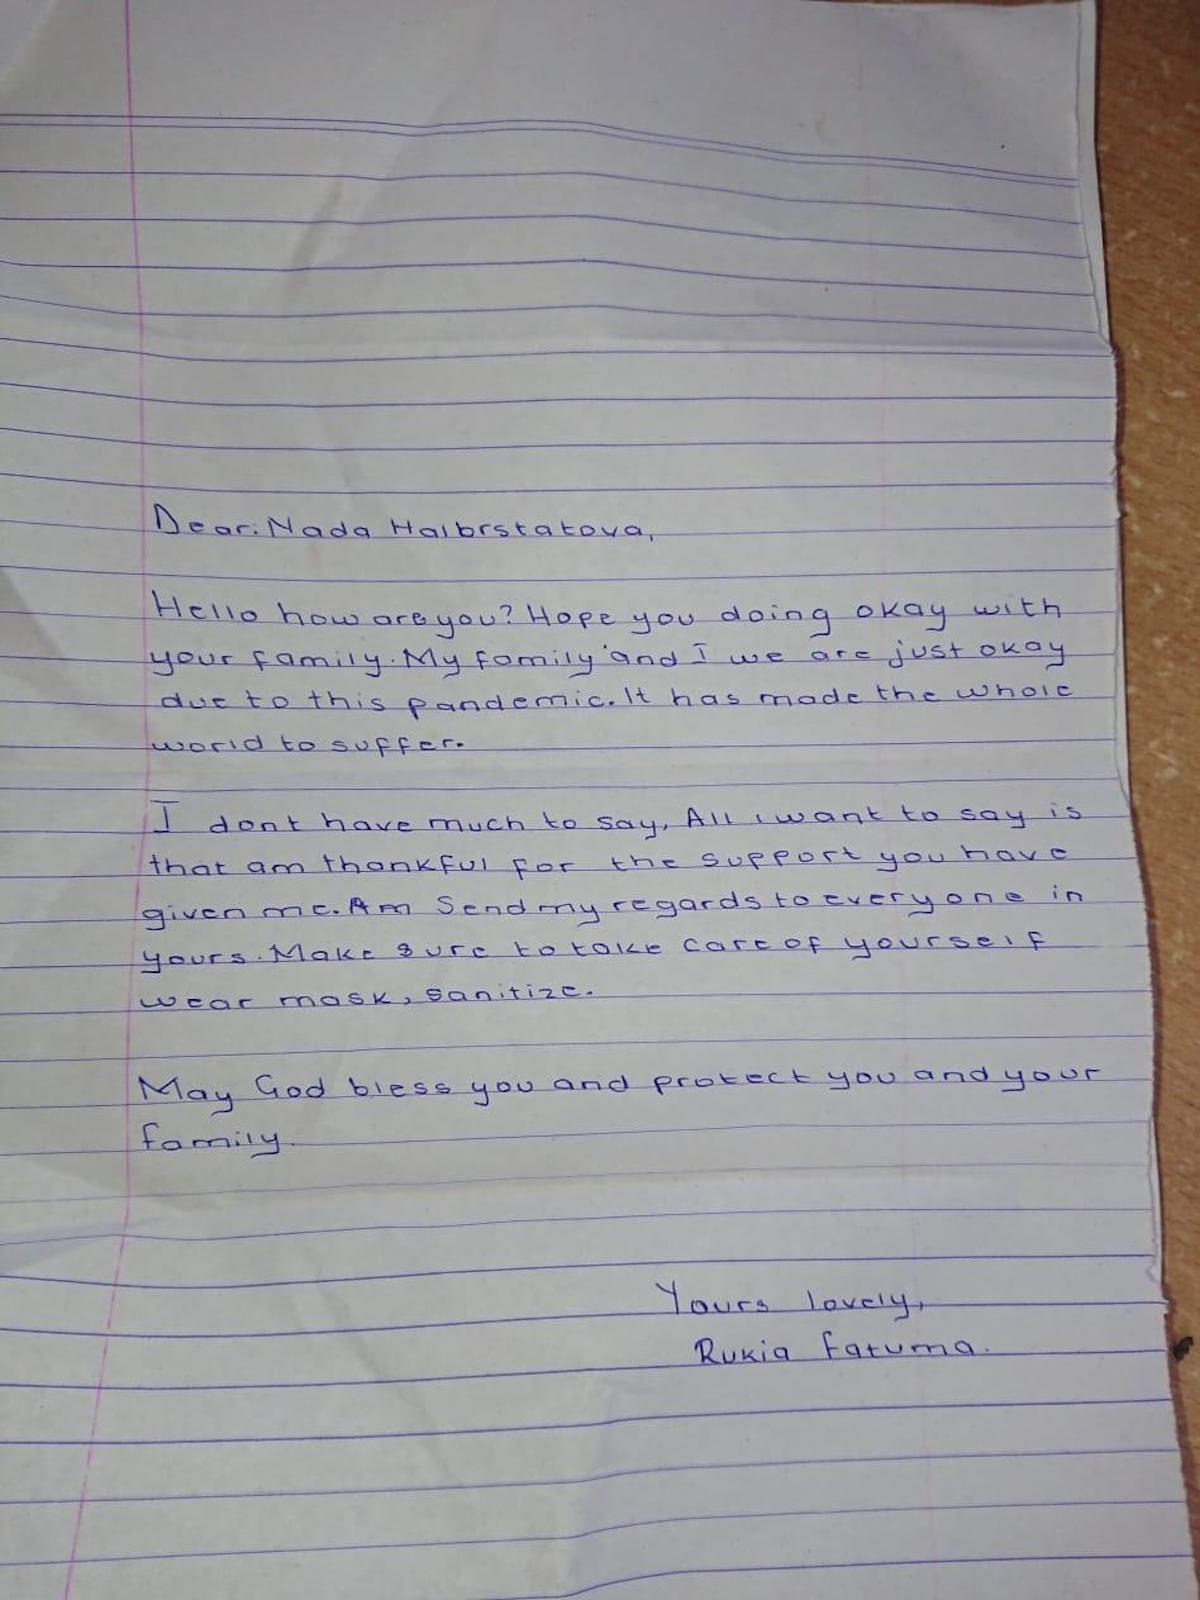 Dear: Nada Halbrstatova,
Hello how are you? Hope you doing okay with
your family. My family and I we are just okay
due to this pandemic. It has made the whole
world to suffer.
I dont have much to say, All i want to say is
that am thankful for the support you have
given me. Am Send my regards to everyone in
yours. Make sure to take care of yourself
wear mask, sanitize.
May God bless you and protect you and your
family.
Yours lovely,
Rukia Fatuma.